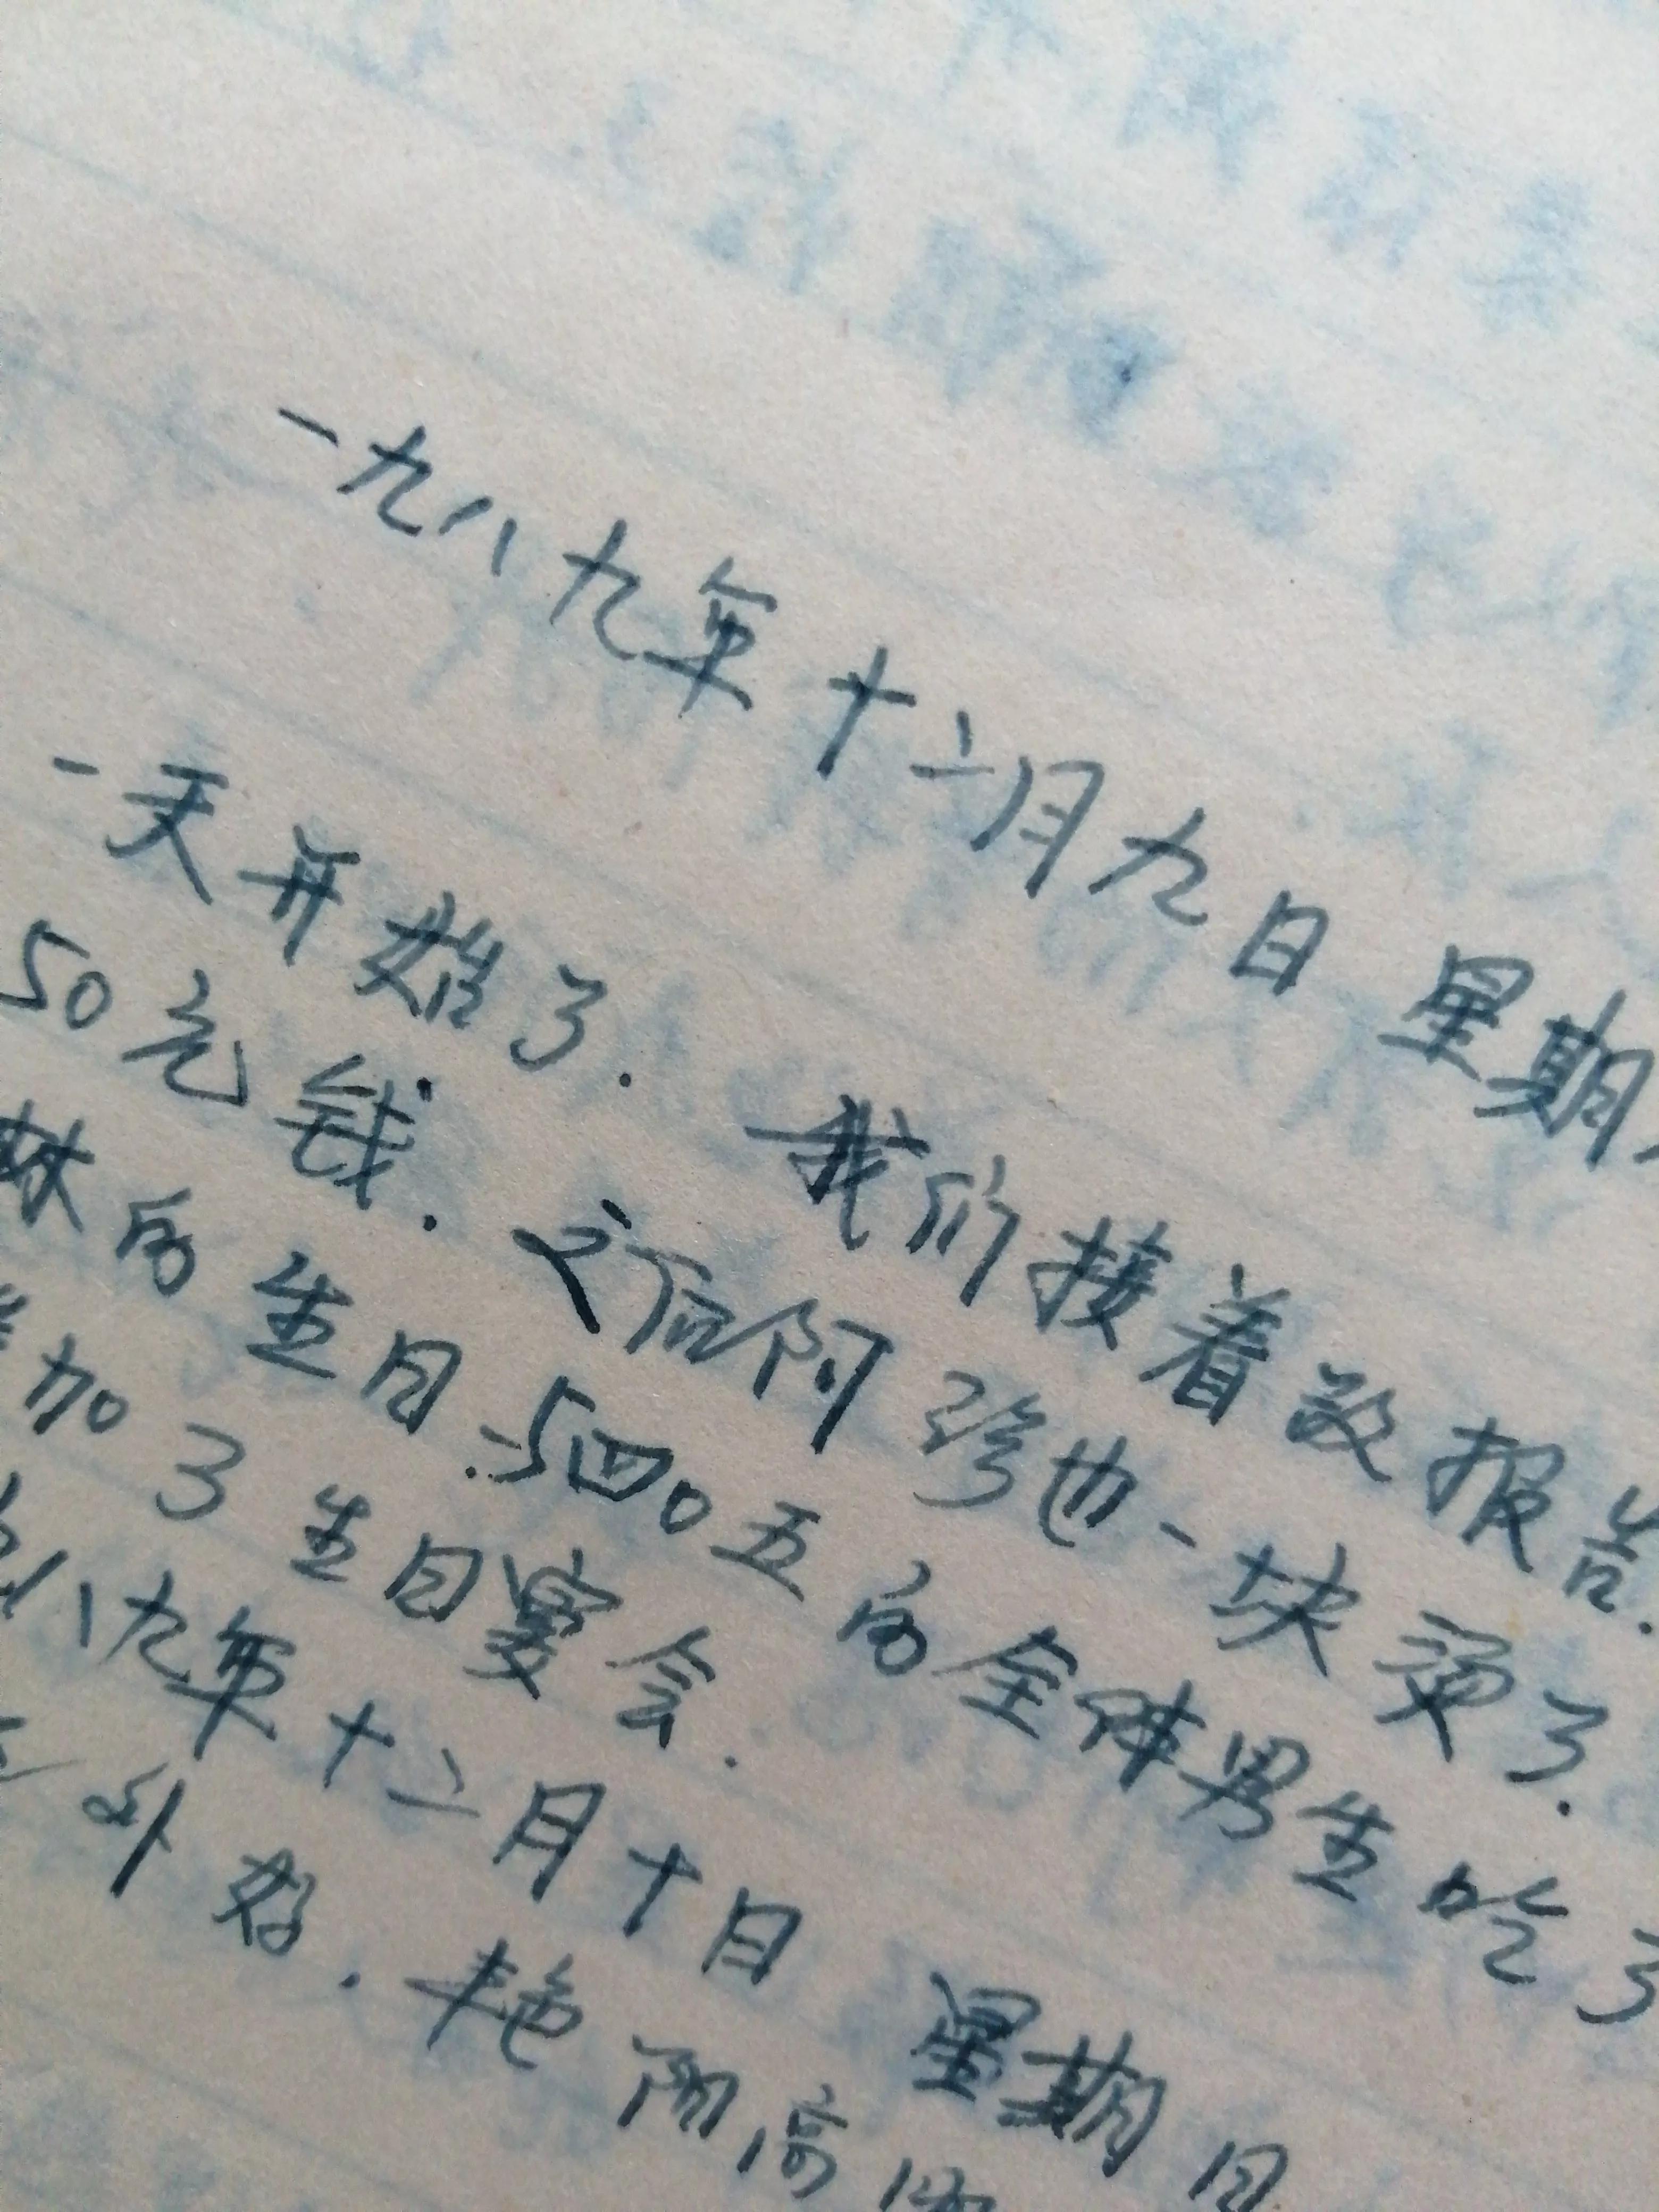 一九八九年十二月九日 星期
一天开始了. 我们接着敲报告.
50元钱. 之后阿珍也一块烫了.
献的生日.5四0五的全体男生吃了
加了生日宴会.
八九年十二月十日 星期日
外好. 艳阳高照